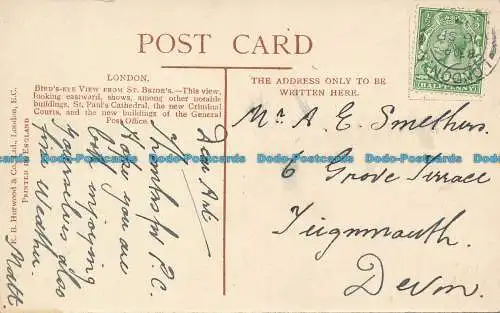 POST CARD
LONDON.
BIRD'S-EYE VIEW FROM ST. BRIDE'S.—This view,
looking eastward, shows, among other notable
buildings, St. Paul's Cathedral, the new Criminal
Courts, and the new buildings of the General
Post Office.
THE ADDRESS ONLY TO BE
WRITTEN HERE.
HALFPENNY
LONDON
R. B. Horwood & Co., Ltd., London, E.C.
PRINTED IN ENGLAND
Dear
Thanks for P.C.
Hope you are
both enjoying
yourselves also
fine Weather.
Matt.
Mr A. E. Smethurs.
6 Grove Terrace
Teignmouth.
Devon.
Dodo-Postcards Dodo-Postcards Dodo-Postcards Dodo-Postcards Dodo-Postcards